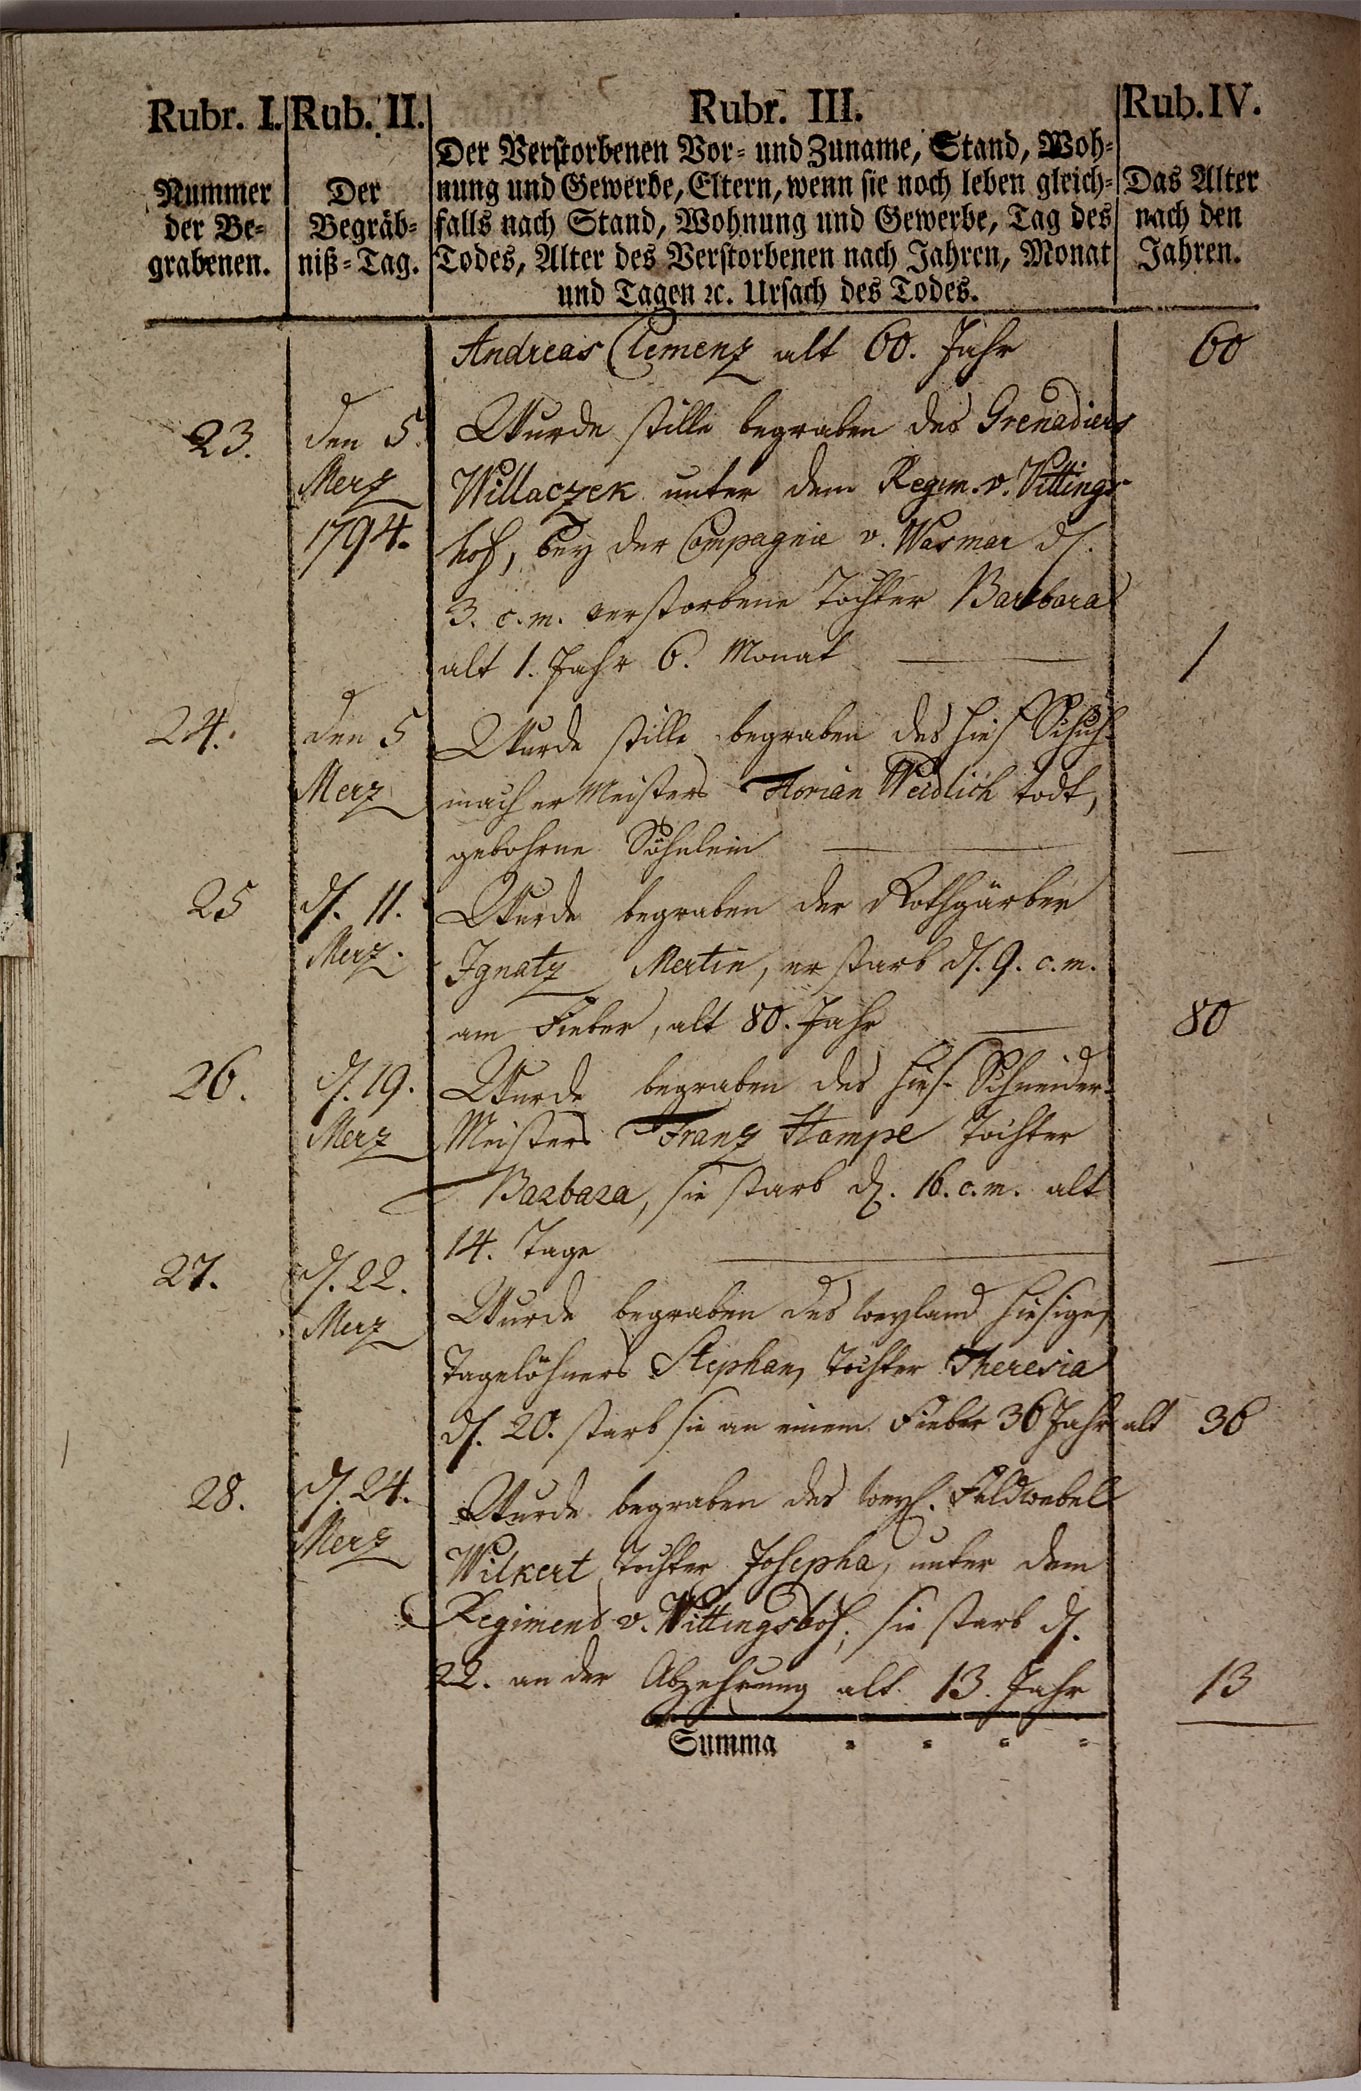 Rubr. I. Rub. II. Rubr. III. Rub. IV.
Nummer der Be=
grabenen.
Der
Begräb=
niß=Tag.
Der Verstorbenen Vor= und Zuname, Stand, Woh=
nung und Gewerbe, Eltern, wenn sie noch leben gleich=
falls nach Stand, Wohnung und Gewerbe, Tag des
Todes, Alter des Verstorbenen nach Jahren, Monat
und Tagen ꝛc. Ursach des Todes.
Das Alter
nach den
Jahren.
Andreas Clemenz alt 60. Jahr 60
23. den 5. Wurde stille begraben des Grenadiers
Merz Willaczek unter dem Regim. v. Vittings-
1794. hof, bey der Compagnie v. Wasmar d.
3. c. m. verstorbene Tochter Barbara
alt 1. Jahr 6. Monat 1
24. den 5 Wurde stille begraben des hies. Schuh-
Merz macher Meisters Florian Weidlich todt,
gebohrne Söhnlein
25 d. 11. Wurde begraben der Rothgärber
Merz. Ignatz Mertin, er starb d. 9. c. m.
am Fieber, alt 80. Jahr 80
26. d. 19. Wurde begraben des hies. Schneider-
Merz Meisters Franz Hampe Tochter
Barbara, sie starb d. 16. c. m. alt
14. Tage
27. d. 22. Wurde begraben des weyland hiesigen
Merz Tagelöhners Stephan, Tochter Theresia
d. 20. starb sie an einem Fieber 36 Jahr alt 36
28. d. 24. Wurde begraben des weyl. Feldwebel
Merz Wilkert Tochter Josepha, unter dem
Regiment v. Vittingshof, sie starb d.
22. an der Abzehrung alt 13. Jahr 13
Summa = = = =